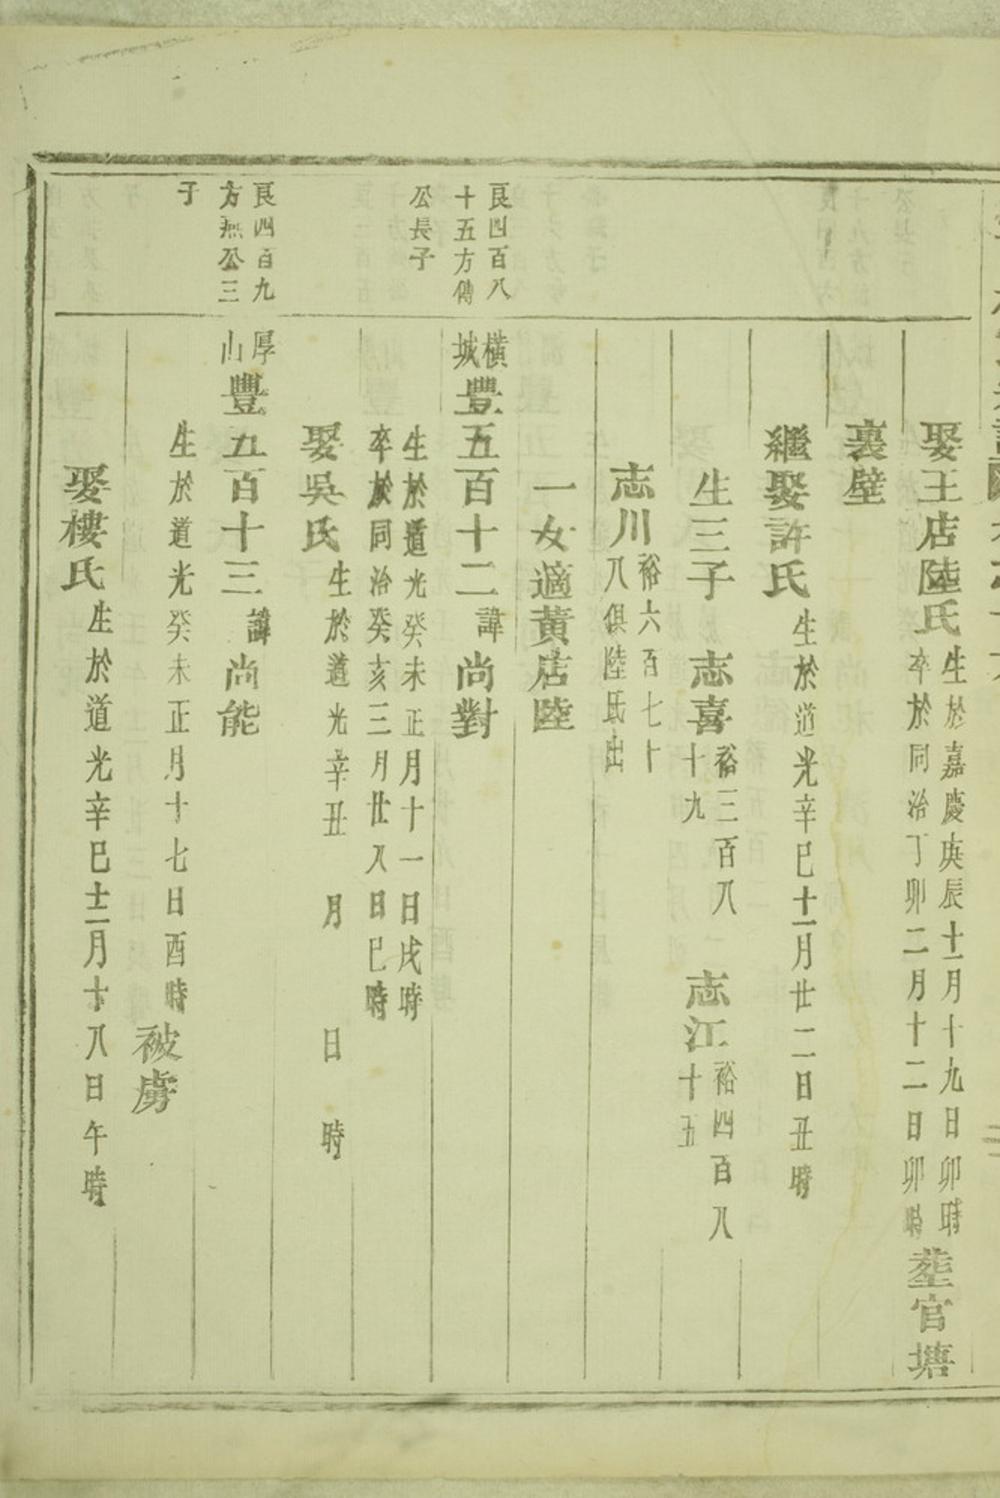 娶王店陸氏
生於嘉慶庚辰十一月十九日卯時
卒於同治丁卯二月十二日卯時
塟官塘
裏壁
繼娶許氏
生於道光辛巳十一月廿二日丑時
生三子 志喜
裕三百八
十九
志江
裕四百八
十五
志川
裕六百七十
八俱陸氏出
一女適黃店陸
良四百八
十五方傳
公長子
橫
城
豐五百十二
諱
尚對
生於道光癸未正月十一日戌時
卒於同治癸亥三月廿八日巳時
娶吳氏
生於道光辛丑 月 日 時
良四百九
方燕公三
子
厚
山
豐五百十三
諱
尚能
生於道光癸未正月十七日酉時
被虜
娶樓氏
生於道光辛巳十二月十八日午時